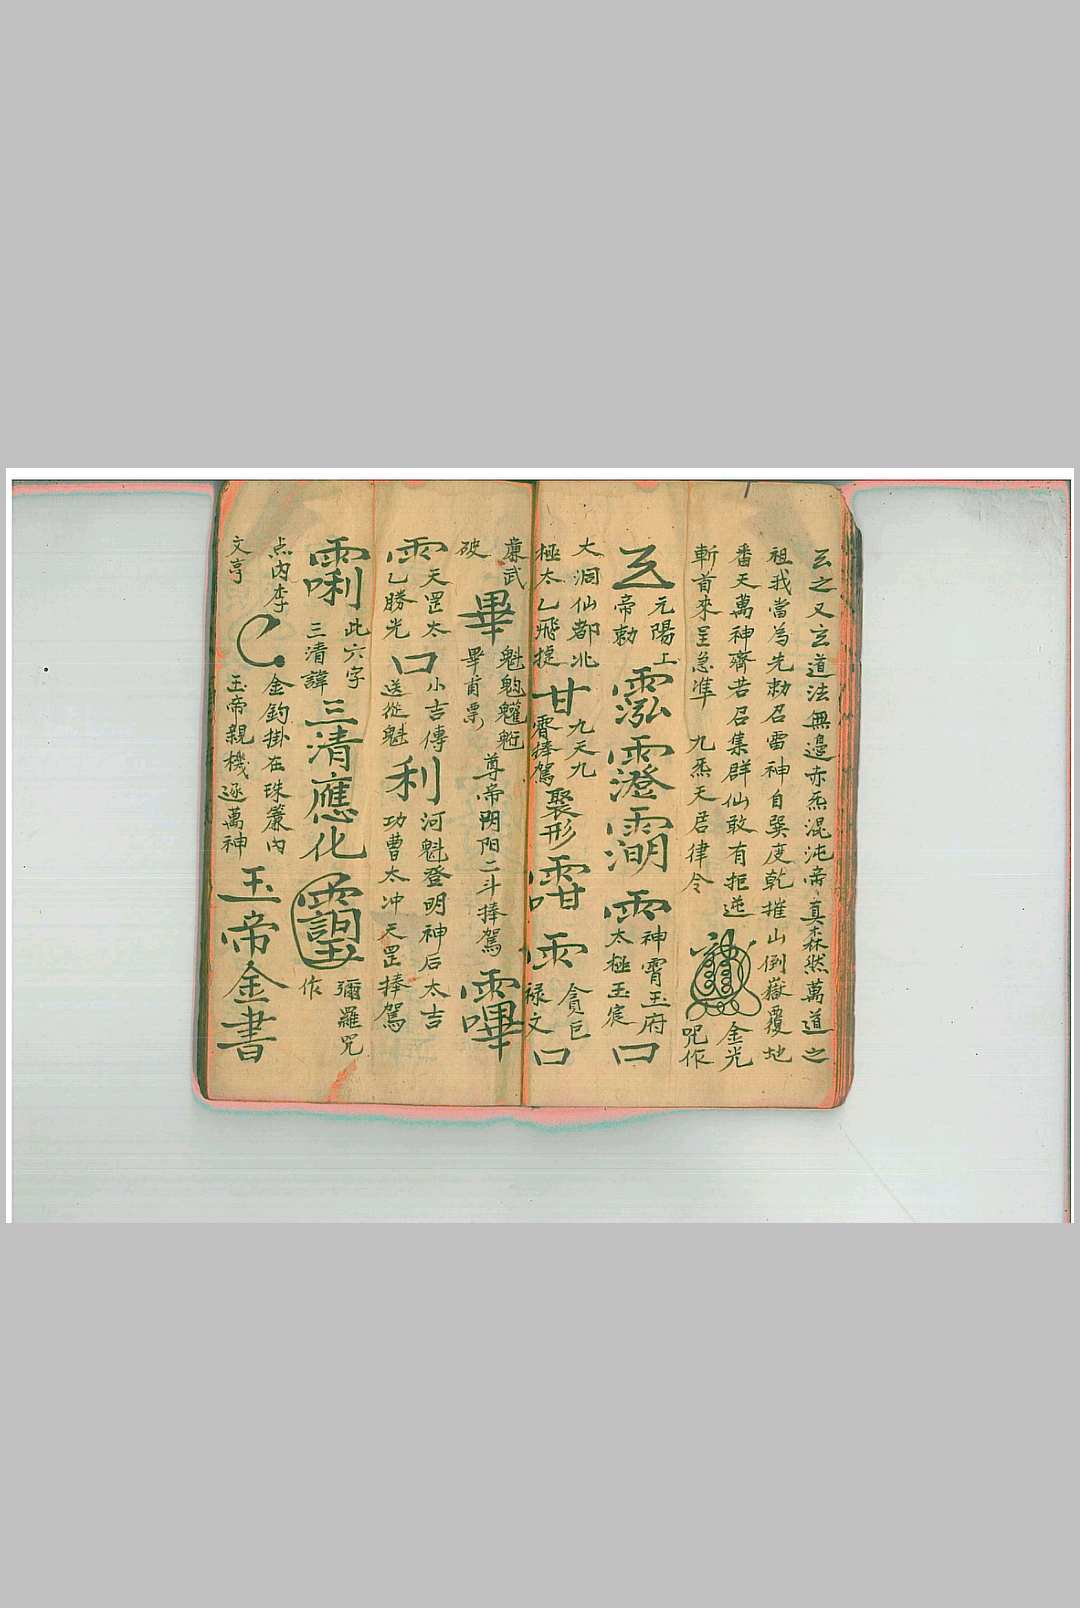 玄之又玄道法無邊赤炁混沌帝真森然萬道之
祖我當為先勅召雷神自巽度乾摧山倒嶽覆地
番天萬神齊若召集群仙敢有拒逆 金光
斬首來呈急準 九炁天君律令 咒作
玄 元陽上
帝勅 神霄玉府
太極玉宸 口
大洞仙都北
極太乙飛捷 甘 九天九
霄捧駕 聚形 貪巨
祿文 口
廉武
破 畢
畢甫票 尊帝陰阳二斗捧駕
雨 天罡太
乙勝光 口 小吉傳
送從魁 利 河魁登明神后太吉
功曹太冲天罡捧駕
此六字
三清諱 三清應化 彌羅咒
作
点内李 金鈎掛在珠簾内
文亨 玉帝親機逐萬神 玉帝金書